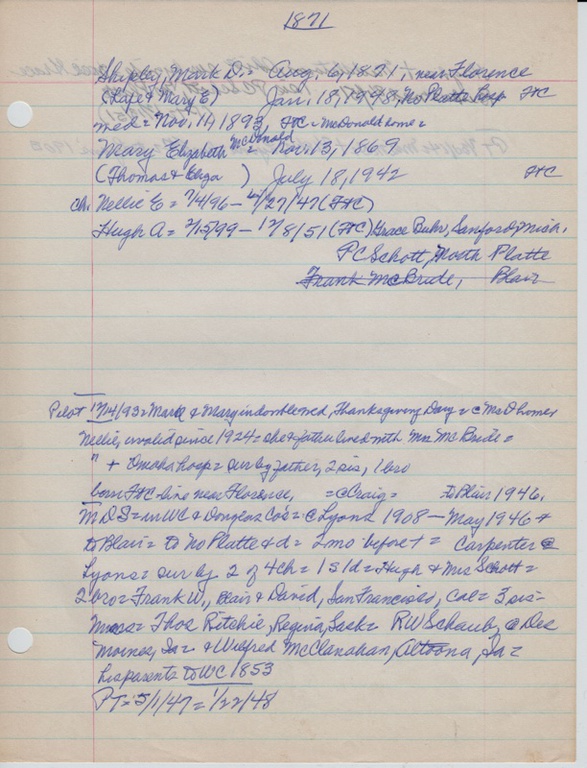 1871
Shipley, Mark D. = Aug. 6, 1871, near Florence
(Lafe & Mary E) Jan. 18, 1948, No Platte Hosp FtC
med = Nov. 1893, FtC = McDonald home =
Mary Elizabeth McDonald = Nov. 13, 1869
(Thomas & Eliza ) July 18, 1942 FtC
ch. Nellie E = 7/4/96 – 4/27/47 (FtC)
Hugh A = 2/15/99 – 12/8/51 (FtC) Grace Buhr, Sanford, Mich.
P C Schott, North Platte
Frank McBride, Blair
Pilot 12/14/93 = Mark & Mary in double wed, Thanksgiving Day = @ McD home
Nellie, invalid since 1924 = she & father lived with Mrs McBride =
" + Omaha hosp = sur by father, 2 sis, 1 bro
born FtC line near Florence, = @ Craig = to Blair 1946,
M D S = in WC & Douglas Cos = @ Lyons 1908 – May 1946 +
to Blair = to No Platte & d = 2 mo before + = Carpenter @
Lyons = sur by 2 of 4 ch = 1 s 1 d = Hugh & Mrs Schott =
2 bro = Frank W., Blair & David, San Francisco, Cal = 3 sis =
Mmes = Thos Ritchie, Regina, Sask = R W Schaub, @ Des
Moines, Ia = & Wilfred McClanahan, Altoona, Ia =
his parents to WC 1853
PT = 5/1/47 = 1/22/48